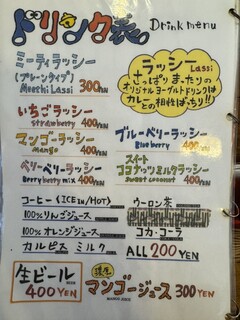 ドリンク表 Drink menu
ミーティラッシー
(プレーンタイプ)
Meethi Lassi 300YEN
ラッシー Lassi
さっぱりまったりの
オリジナルヨーグルトドリンクは
カレーとの相性ばっちり!!
いちごラッシー
Strawberry 400YEN
マンゴーラッシー
Mango 400YEN
ブルーベリーラッシー
Blueberry 400YEN
ベリーベリーラッシー
Berryberry mix 400YEN
スイート
ココナッツミルクラッシー
Sweet coconut 400YEN
コーヒー(ICE/HOT)
100%りんごジュース
100%オレンジジュース
カルピス ミルク
ウーロン茶
コカ・コーラ
ALL 200YEN
生ビール
400YEN
濃厚
マンゴージュース 300YEN
MANGO JUICE